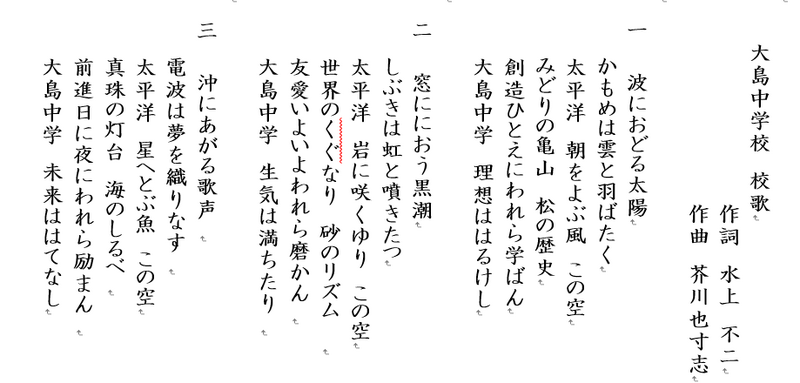 大島中学校　校歌
作詞　水上　不二
作曲　芥川也寸志
一　波におどる太陽
かもめは雲と羽ばたく
太平洋　朝をよぶ風　この空
みどりの亀山　松の歴史
創造ひとえにわれら学ばん
大島中学　理想ははるけし
二　窓ににおう黒潮
しぶきは虹と噴きたつ
太平洋　岩に咲くゆり　この空
世界のくぐなり　砂のリズム
友愛いよいよわれら磨かん
大島中学　生気は満ちたり
三　沖にあがる歌声
電波は夢を織りなす
太平洋　星へとぶ魚　この空
真珠の灯台　海のしるべ
前進日に夜にわれら励まん
大島中学　未来ははてなし